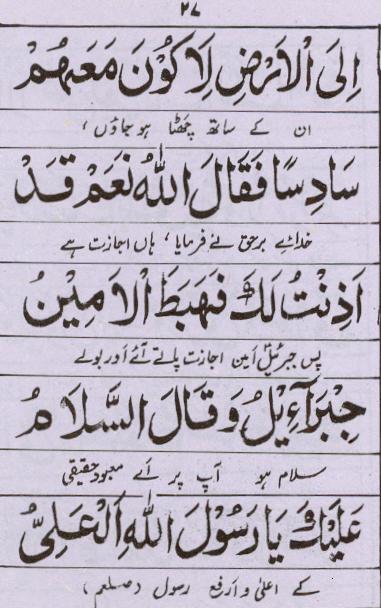 ۲۷
اِلَى الْاَرْضِ لِاَكُوْنَ مَعَهُمْ
ان کے ساتھ چھٹا ہو جاؤں،
سَادِسًا فَقَالَ اللّٰهُ نَعَمْ قَدْ
خدائے برحق نے فرمایا، ہاں اجازت ہے
اَذِنْتُ لَكَ فَهَبَطَ الْاَمِيْنُ
پس جبرئیل امین اجازت پاتے آئے اور بولے
جِبْرَآءِيْلُ وَقَالَ السَّلَامُ
سلام ہو آپ پر اے معبود حقیقی
عَلَيْكَ يَا رَسُوْلَ اللّٰهِ اَلْعَلِىُّ
کے اعلیٰ و ارفع رسول (صلعم)،